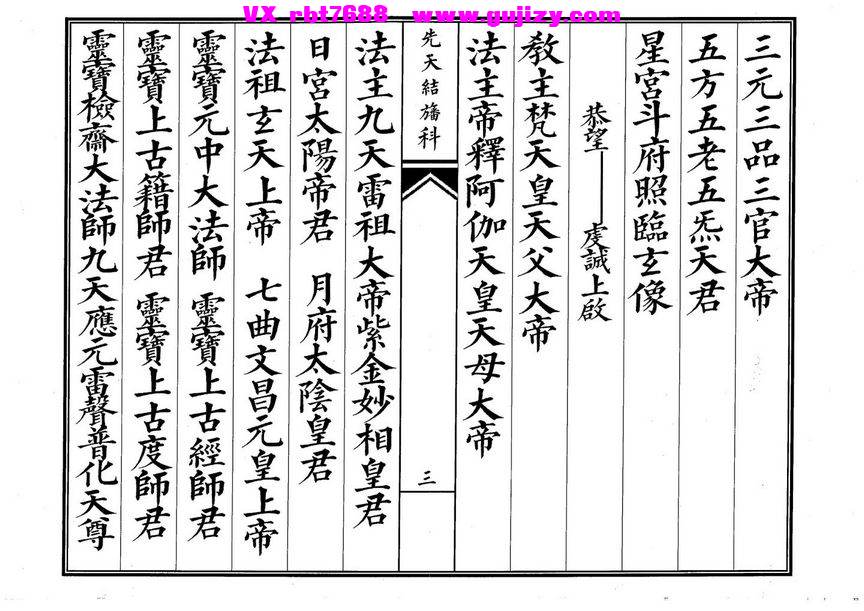 VX rbt7688 www.gujizy.com
三元三品三官大帝
五方五老五炁天君
星宮斗府照臨玄像
恭望——虔誠上啟
教主梵天皇天父大帝
法主帝釋阿伽天皇天母大帝
先天結旛科
三
法主九天雷祖大帝紫金妙相皇君
日宮太陽帝君 月府太陰皇君
法祖玄天上帝 七曲文昌元皇上帝
靈寶元中大法師 靈寶上古經師君
靈寶上古籍師君 靈寶上古度師君
靈寶檢齋大法師九天應元雷聲普化天尊